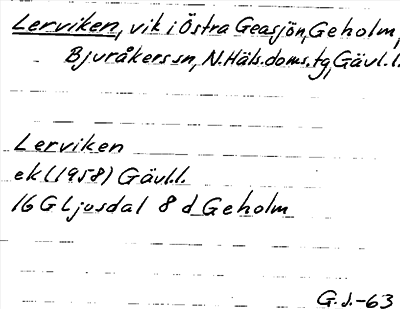 Lerviken, vik i Östra Geasjön, Geholm,
Bjuråkers sn, N. Häls. doms. tg, Gävl. l.
Lerviken
ek (1958) Gävl. l.
16 G Ljusdal 8 d Geholm
G. J. -63